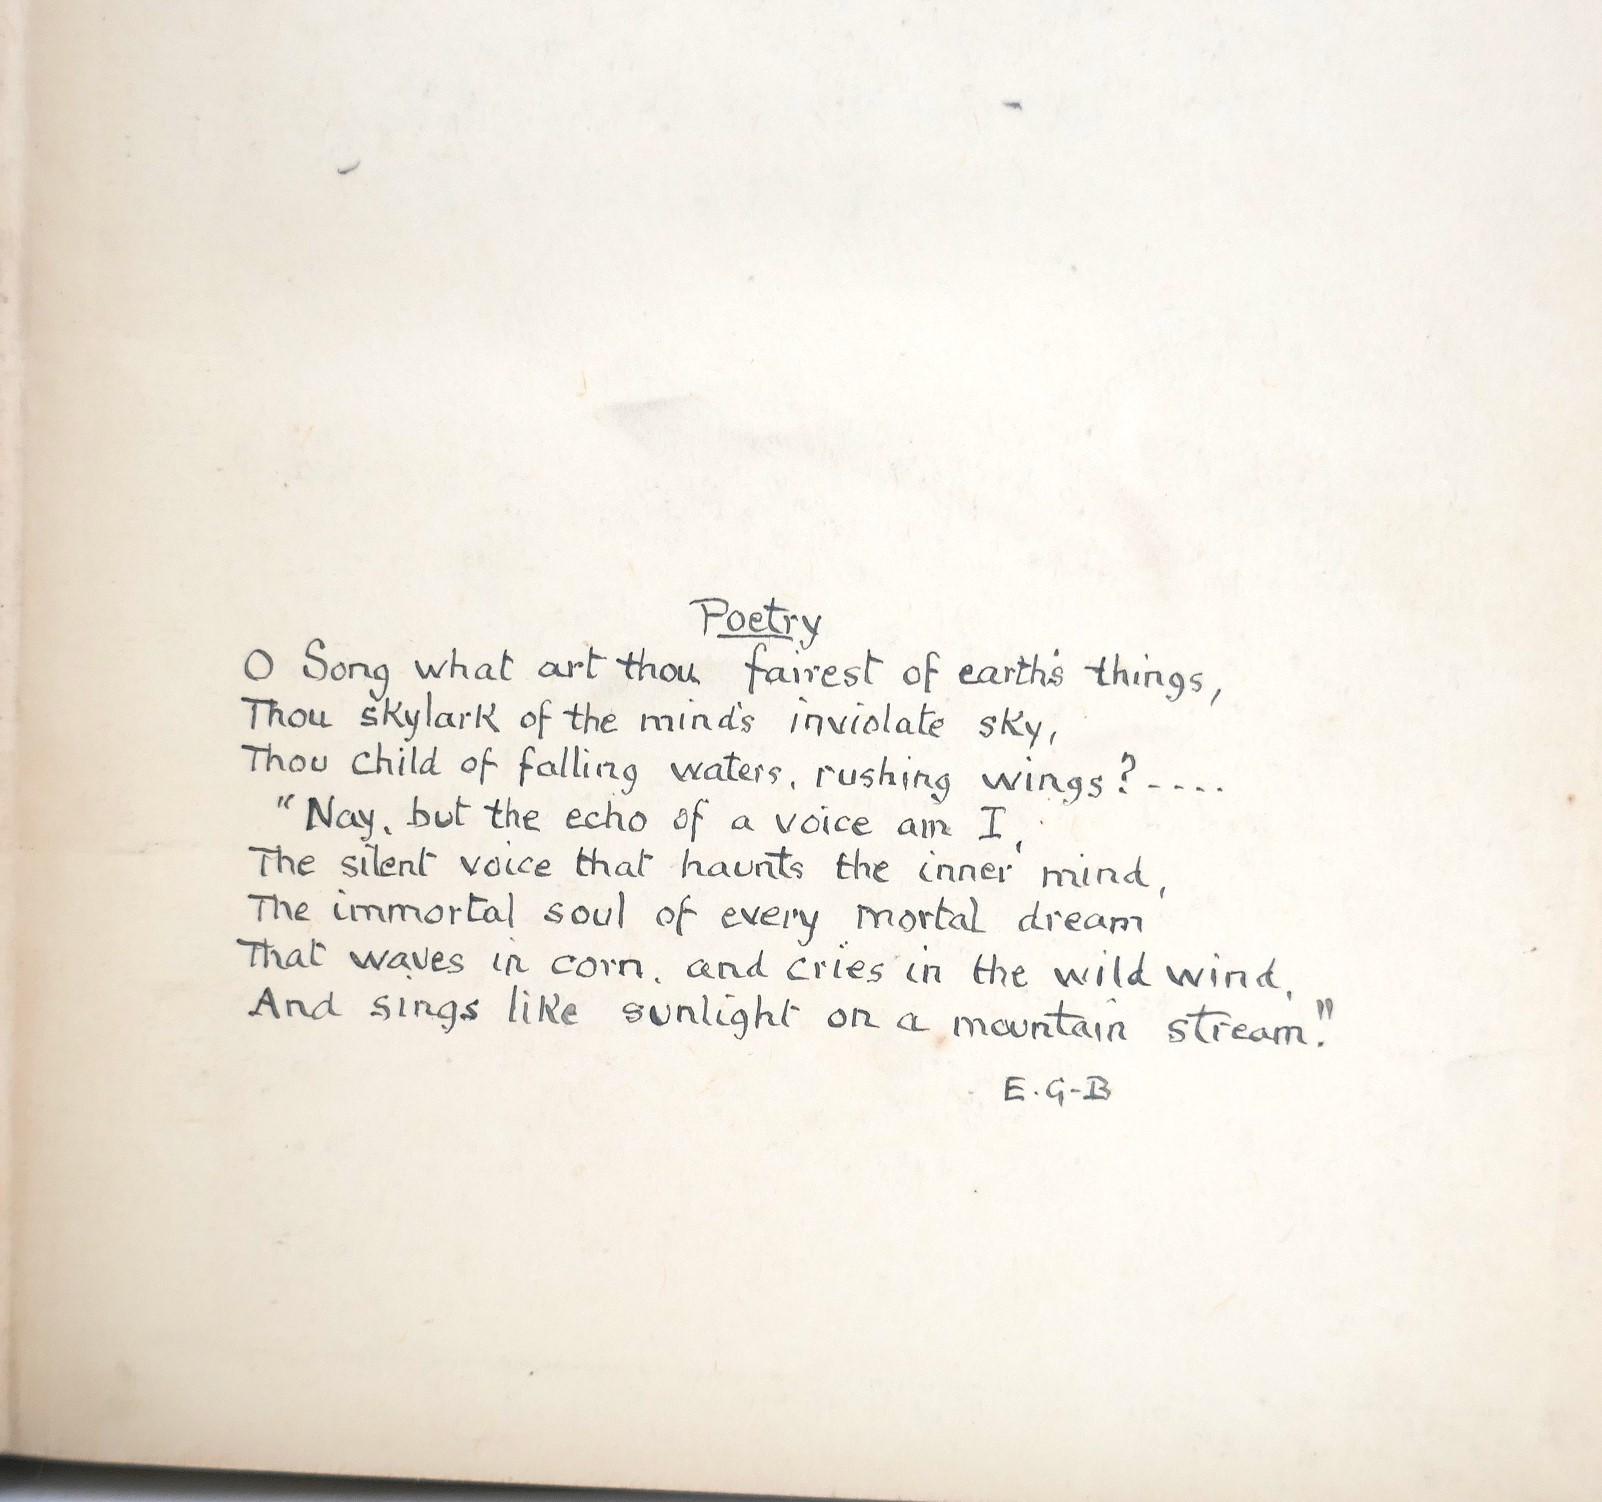 Poetry
O Song what art thou fairest of earth's things,
Thou skylark of the mind's inviolate sky,
Thou child of falling waters, rushing wings?----
"Nay, but the echo of a voice am I,
The silent voice that haunts the inner mind,
The immortal soul of every mortal dream
That waves in corn, and cries in the wild wind,
And sings like sunlight on a mountain stream."
E.G-B